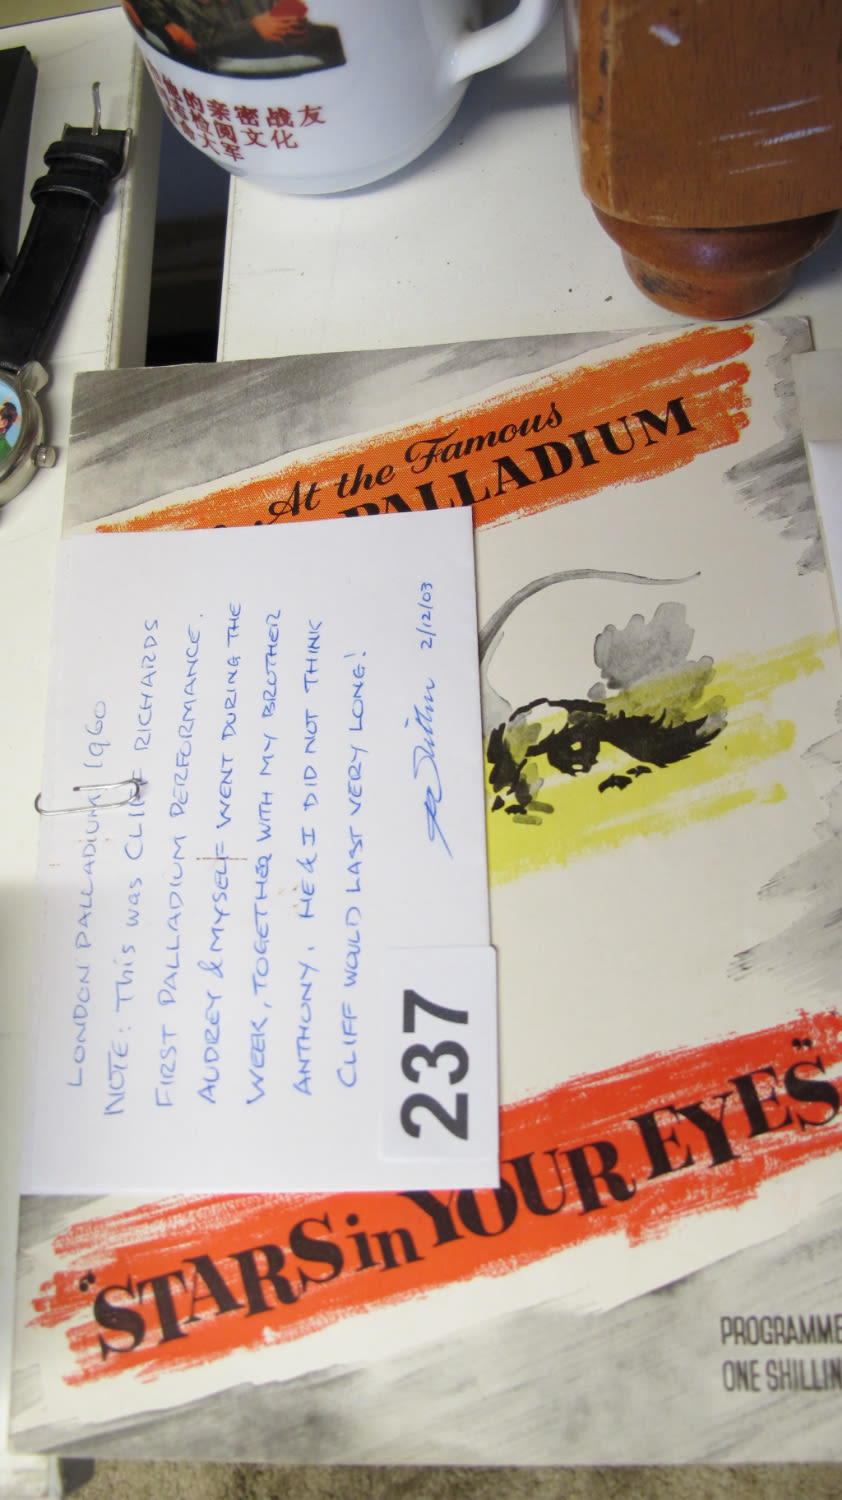 的亲密战友
检阅文化
大军
At the Famous
PALLADIUM
LONDON PALLADIUM 1960
NOTE: This was CLIFF RICHARDS
FIRST PALLADIUM PERFORMANCE.
AUDREY & MYSELF WENT DURING THE
WEEK, TOGETHER WITH MY BROTHER
ANTHONY. HE & I DID NOT THINK
CLIFF WOULD LAST VERY LONG!
2/12/03
237
"STARS in YOUR EYES"
PROGRAMME
ONE SHILLIN